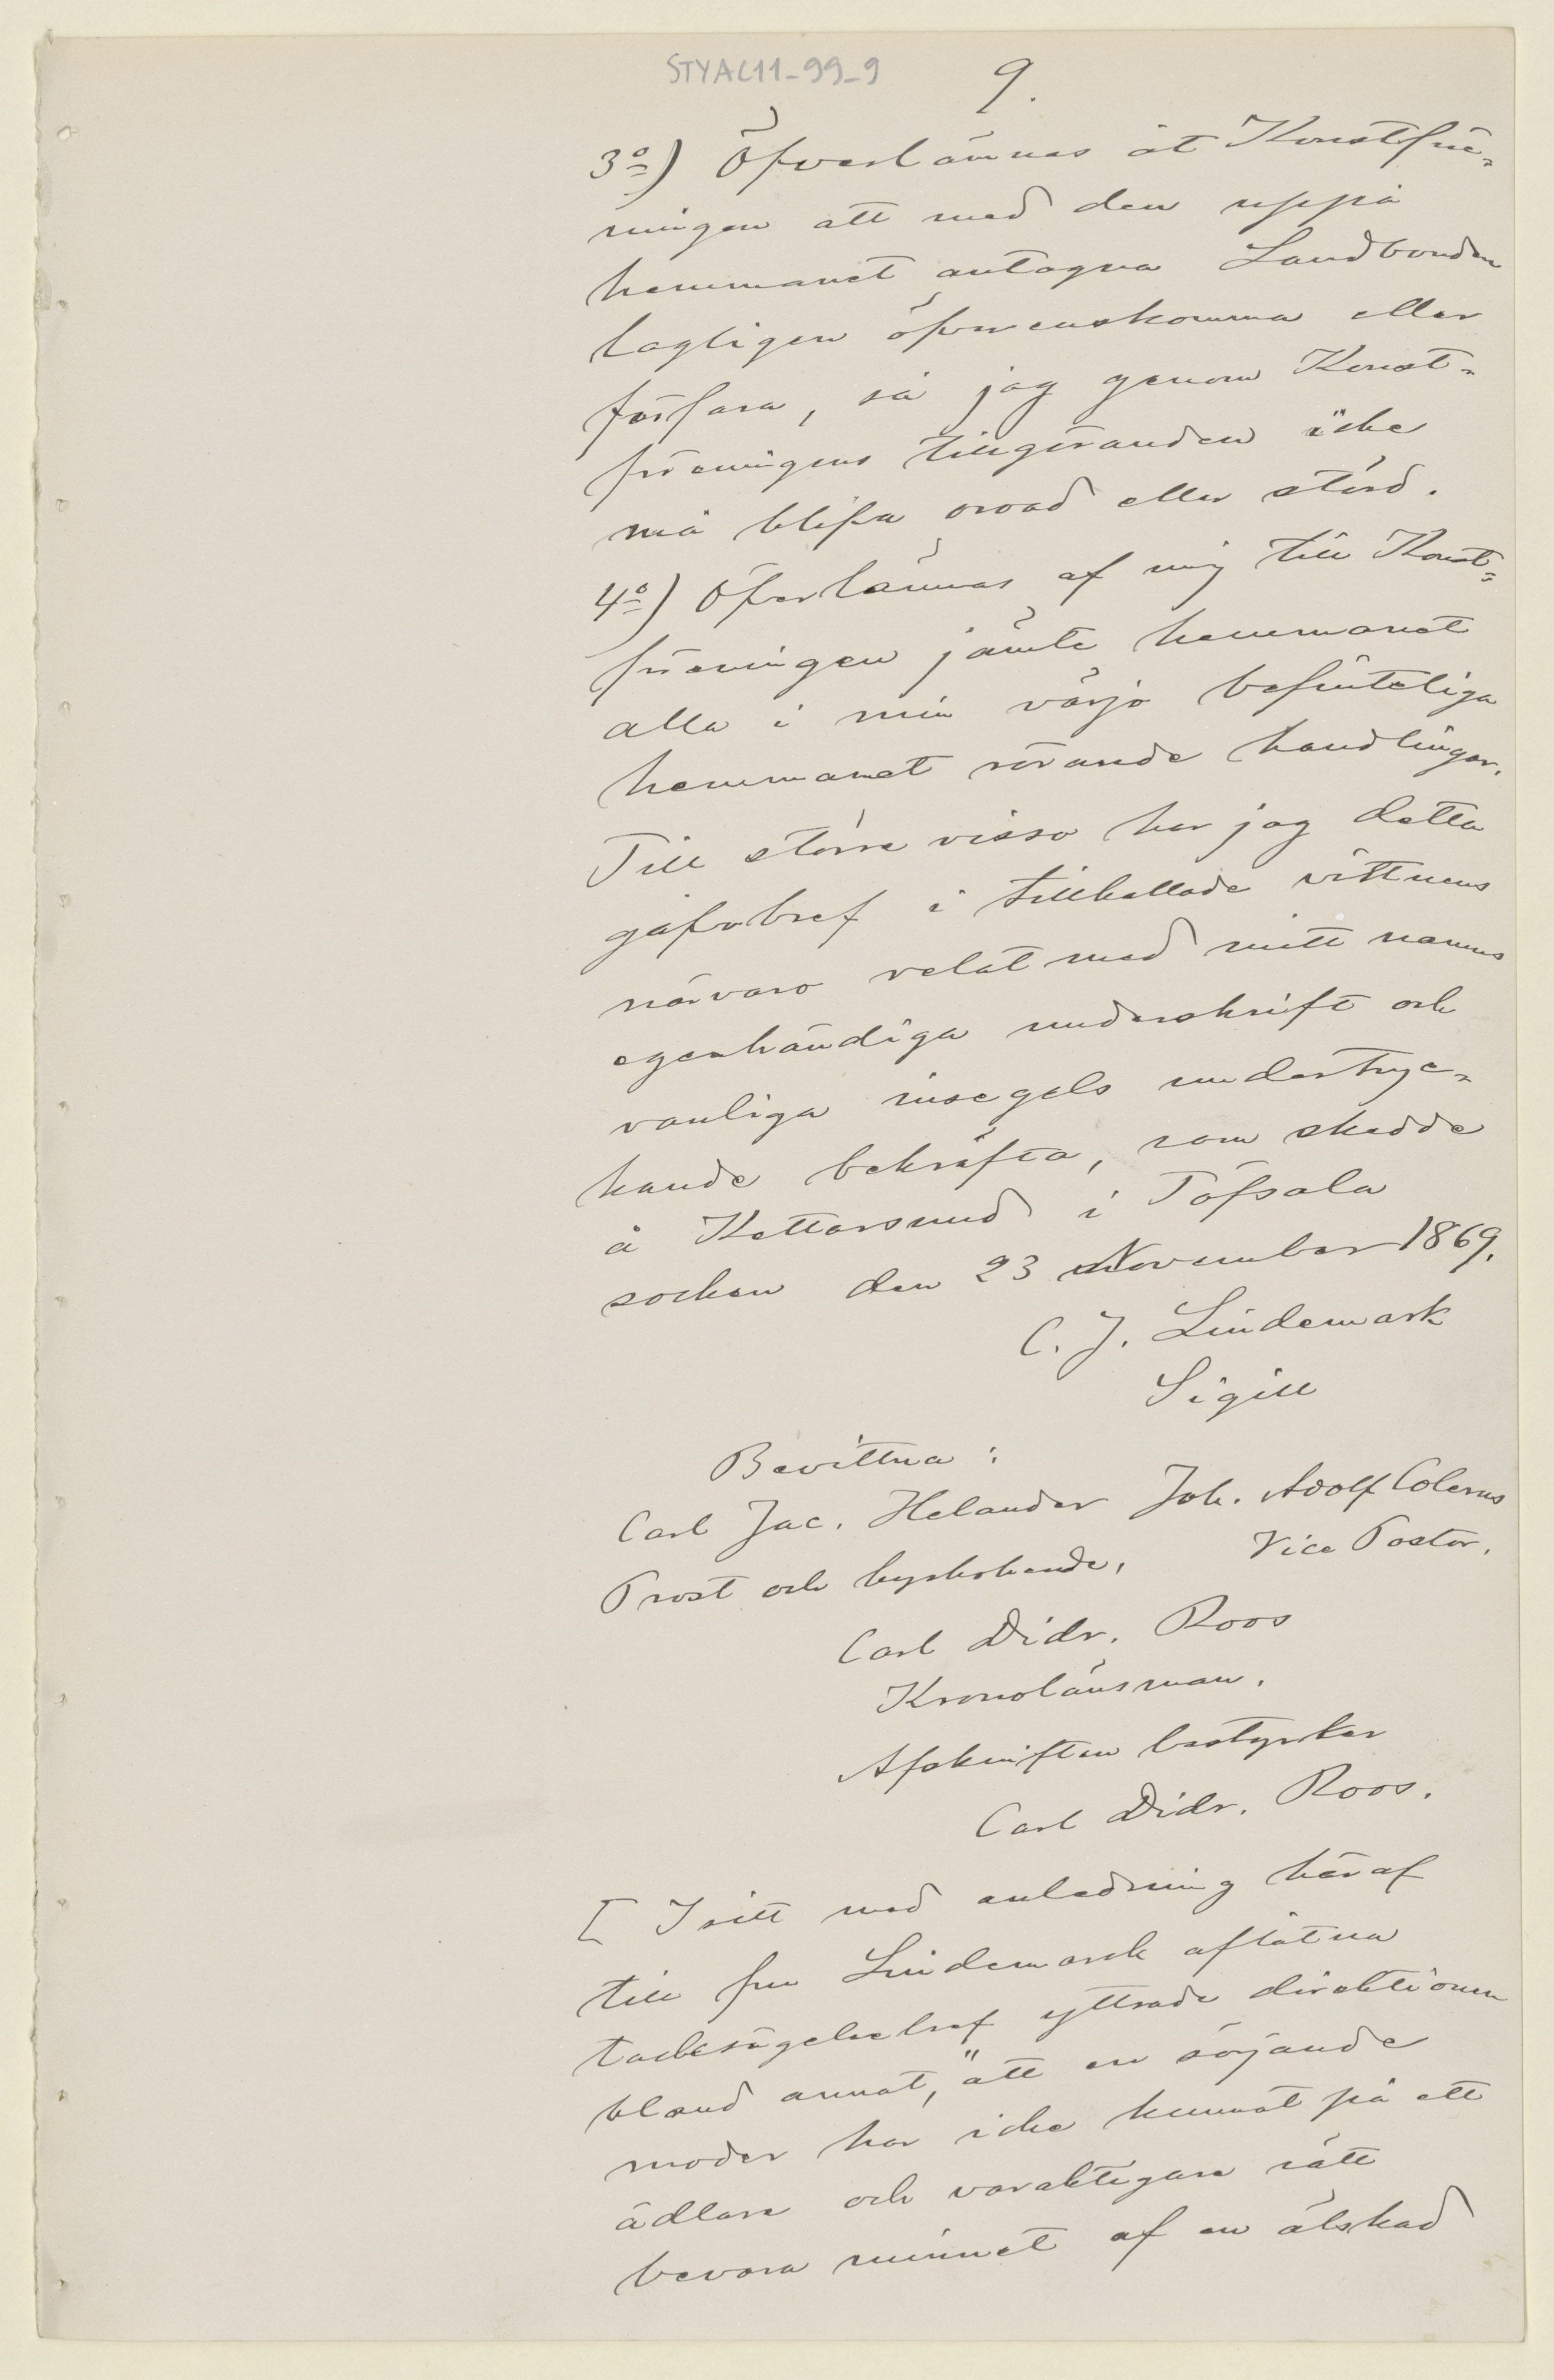 STYAC11-99-9
9.
3o) Öfverlämnas åt Konstföre-
ningen att med den uppå
hemmanet antagna Landbonden
lagligen öfverenskomma eller
förfara, så jag genom Konst-
föreningens tillgöranden icke
må blifva oroad eller störd.
4o) Öfverlämnas af mig till Konst-
föreningen jämte hemmanet
alla i min värjo befinteliga
hemmanet rörande handlingar.
Till större visso har jag detta
gåfvobref i tillkallade vittnens
närvaro velat med mitt namns
egenhändiga underskrift och
vanliga insegels undertryc-
kande bekräfta, som skedde
å Kettarsund i Töfsala
socken den 23 November 1869.
C. J. Lindemark
Sigill
Bevittna:
Carl Jac. Helander Joh. Adolf Colerus
Prost och kyrkoherde, Vice Pastor.
Carl Didr. Roos
Kronolänsman.
Afskriften bestyrker
Carl Didr. Roos.
[ I sitt med anledning häraf
till fru Lindemark aflåtna
tacksägelsebref yttrade direktionen
bland annat, "att en sörjande
moder har icke kunnat på ett
ädlare och varaktigare sätt
bevara minnet af en älskad